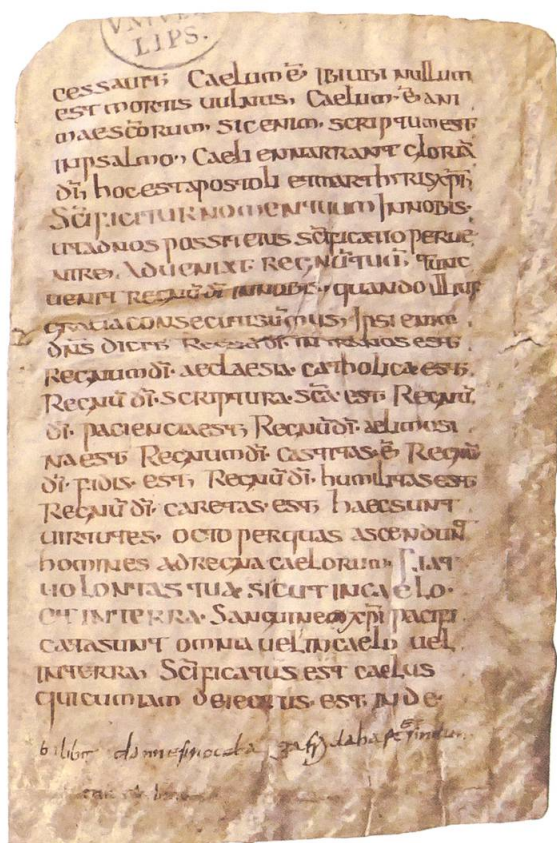 VNIVE
LIPS.
cessauit; Caelum ē ibi ubi nullum
est mortis uulnus, Caelum ē ani
mae scōrum, sic enim scriptum est
in psalmo, Caeli ennarrant gloriā
dī, hoc est apostoli et marthyris xp̄i,
Scīficitur nomen tuum In nobis
ut ad nos possit eius scīficatio perue
nire, Adueniat regnū tuū, tunc
uenit regnū dī in nobis, quando
gratia consecuti sumus, Ipsi enim
dn̄s dicit Regnū dī intra uos est
Regnum dī aeclaesia catholica est,
Regnū dī scriptura scā est Regnū
dī paciencia est, Regnū dī aelimosi
na est Regnum dī castitas ē Regnū
dī fidis est, Regnū dī humilitas est
Regnū dī caretas est, haec sunt
uirtutes octo per quas ascendunt
homines ad regna caelorum, Fiat
uolontas tua sicut in caelo
et in terra Sanguine xp̄i pacifi
cata sunt omnia uel in caelo uel
in terra, Scīficatus est caelus
qui cum iam deiectus est inde